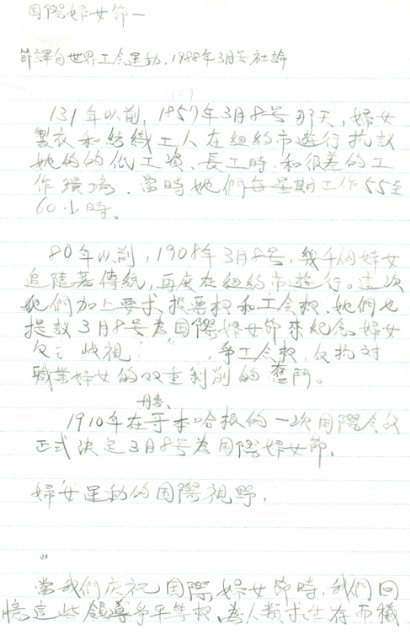 国際婦女節一
節譯自世界工会運動,1988年3月号社論
131年以前,1857年3月8号那天,婦女
製衣和紡織工人在纽约市遊行抗議
她的的低工资、長工時和很差的工
作環境.當時她們每星期工作55至
60小時。
80年以前,1908年3月8号,幾千個婦女
追随着傳统,再度在纽约市遊行。這次
她們加上要求投票权和工会权.她們也
提議3月8号為国際婦女節來紀念婦女
反 歧視 , 爭工会权,反抗对
職業婦女的双重剥削的奮鬥。
丹麥、
1910年在哥本哈根的一次国際会议
正式决定3月8号為国際婦女節.
婦女運動的国際視野,
當我們庆祝国際婦女節時,我們回
憶這些領導爭平等权.為人類求生存而犧